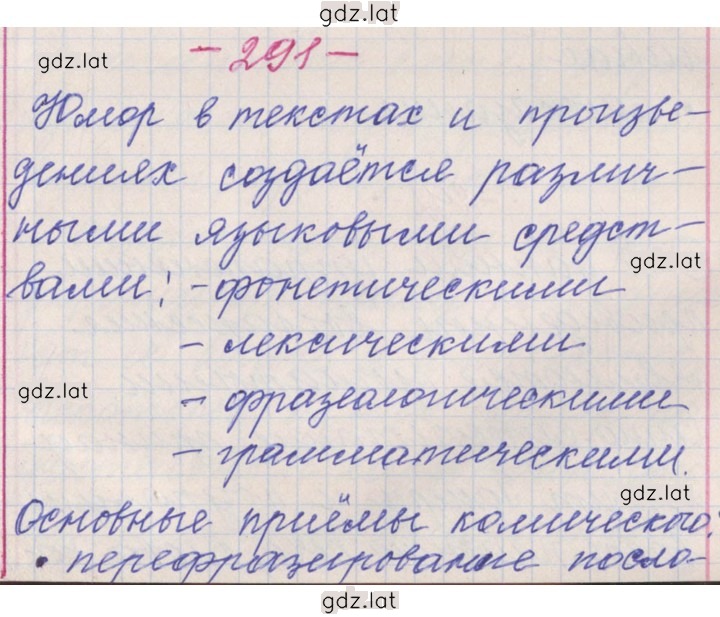 gdz.lat
- 291 -
gdz.lat
Юмор в текстах и произве-
дениях создаётся различ-
ными языковыми средст-
gdz.lat
вами: - фонетическими
- лексическими
gdz.lat
- фразеологическими
- грамматическими.
gdz.lat
Основные приёмы комического:
• перефразирование посло-
gdz.lat